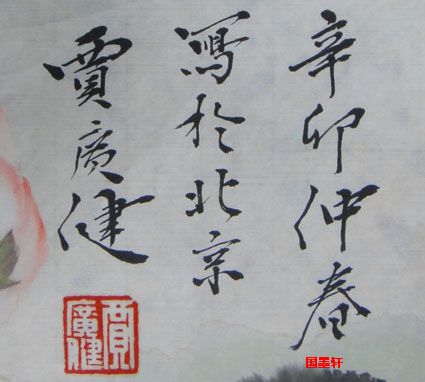 辛卯仲春
寫於北京
賈廣健
賈廣健
国墨轩